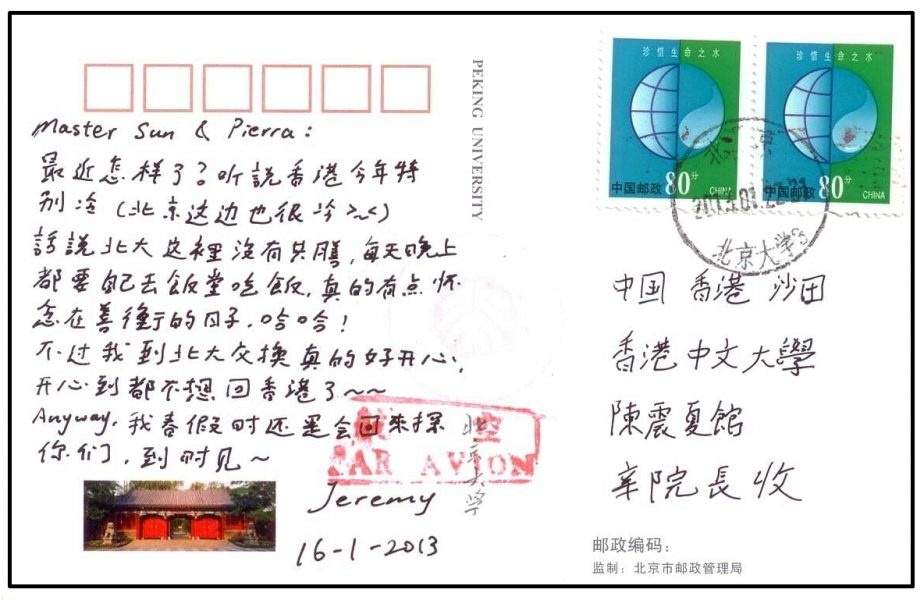 Master Sun & Pierra:
最近怎样了?听説香港今年特
别冷(北京这边也很冷>_<)
話説北大这裡沒有共膳,每天晚上
都要自己去飯堂吃飯,真的有点怀
念在善衡的日子,哈哈!
不过我到北大交换真的好开心,
开心到都不想回香港了~~
Anyway,我春假时还是会回来探
你们,到时见~
Jeremy
16-1-2013
PEKING UNIVERSITY
北京大学
航空
PAR AVION
珍惜生命之水
中国邮政 80分 CHINA
珍惜生命之水
中国邮政 80分 CHINA
北京
北京大学3
中国 香港 沙田
香港中文大學
陳震夏館
辛院長收
邮政编码:
监制:北京市邮政管理局